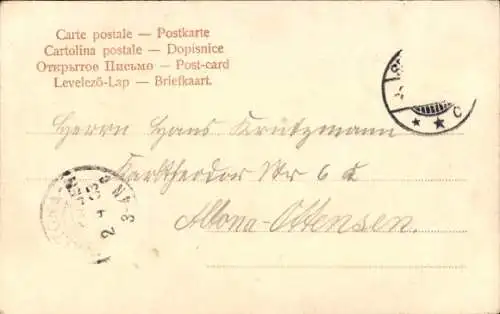 Carte postale — Postkarte
Cartolina postale — Dopisnice
Открытое Письмо — Post-card
Levelező-Lap — Briefkaart.
C
Herrn Hans Krützmann
Karltheodor Str 6 I
Altona-Ottensen.